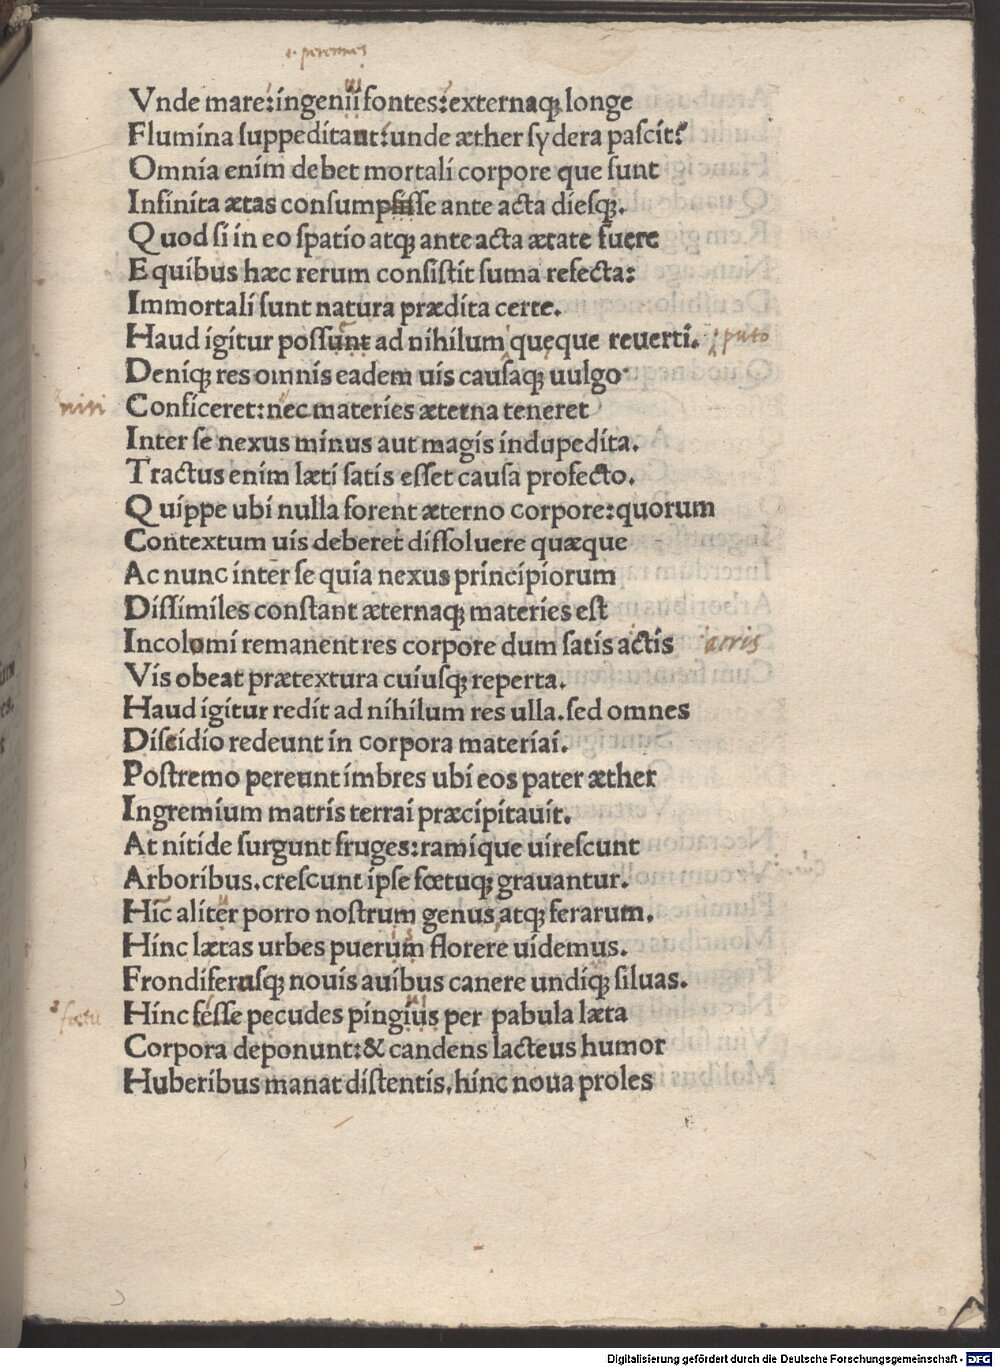 i. perennes
Vnde mare:ingenii fontes:externaqꝫ longe
Flumina ſuppeditant:unde æther ſydera paſcit?
Omnia enim debet mortali corpore que ſunt
Infinita ætas conſumpſiſſe ante acta dieſqꝫ.
Quod ſi in eo ſpatio atqꝫ ante acta ætate fuere
E quibus hæc rerum conſiſtit ſuma refecta:
Immortali ſunt natura prædita certe.
Haud igitur poſſunt ad nihilum queque reuerti. puto
Deniqꝫ res omnis eadem uis cauſaqꝫ uulgo
niſi Conficeret:nec materies æterna teneret
Inter ſe nexus minus aut magis indupedita.
Tractus enim læti ſatis eſſet cauſa profecto.
Quippe ubi nulla forent æterno corpore:quorum
Contextum uis deberet diſſoluere quæque
Ac nunc inter ſe quia nexus principiorum
Diſſimiles conſtant æternaqꝫ materies eſt
Incolomi remanent res corpore dum ſatis actis acris
Vis obeat prætextura cuiuſqꝫ reperta.
Haud igitur redit ad nihilum res ulla.ſed omnes
Diſcidio redeunt in corpora materiai.
Poſtremo pereunt imbres ubi eos pater æther
Ingremium matris terrai præcipitauit.
At nitide ſurgunt fruges:ramique uireſcunt
Arboribus.creſcunt ipſe fœtuqꝫ grauantur.
Hic aliter porro noſtrum genus atqꝫ ferarum.
Hinc lætas urbes puerum florere uidemus.
Frondiferuſqꝫ nouis auibus canere undiqꝫ ſiluas.
fœtu Hinc feſſe pecudes pingius per pabula læta
Corpora deponunt:& candens lacteus humor
Huberibus manat diſtentis.hinc noua proles
Digitalisierung gefördert durch die Deutsche Forschungsgemeinschaft - DFG